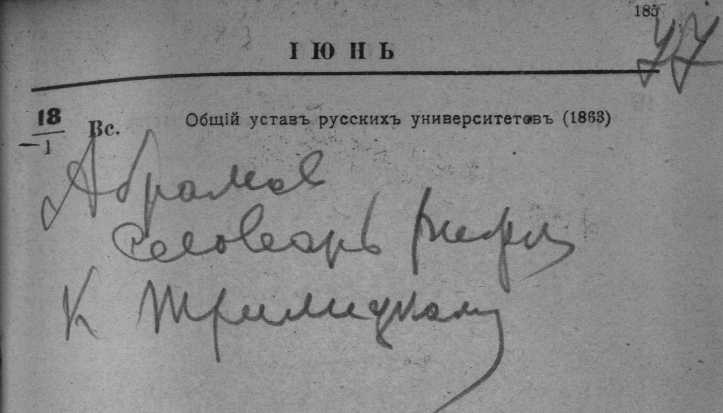 185
77
ІЮНЬ
18/1 Вс. Общій уставъ русскихъ университетовъ (1863)
Абрамов
Словарь
К